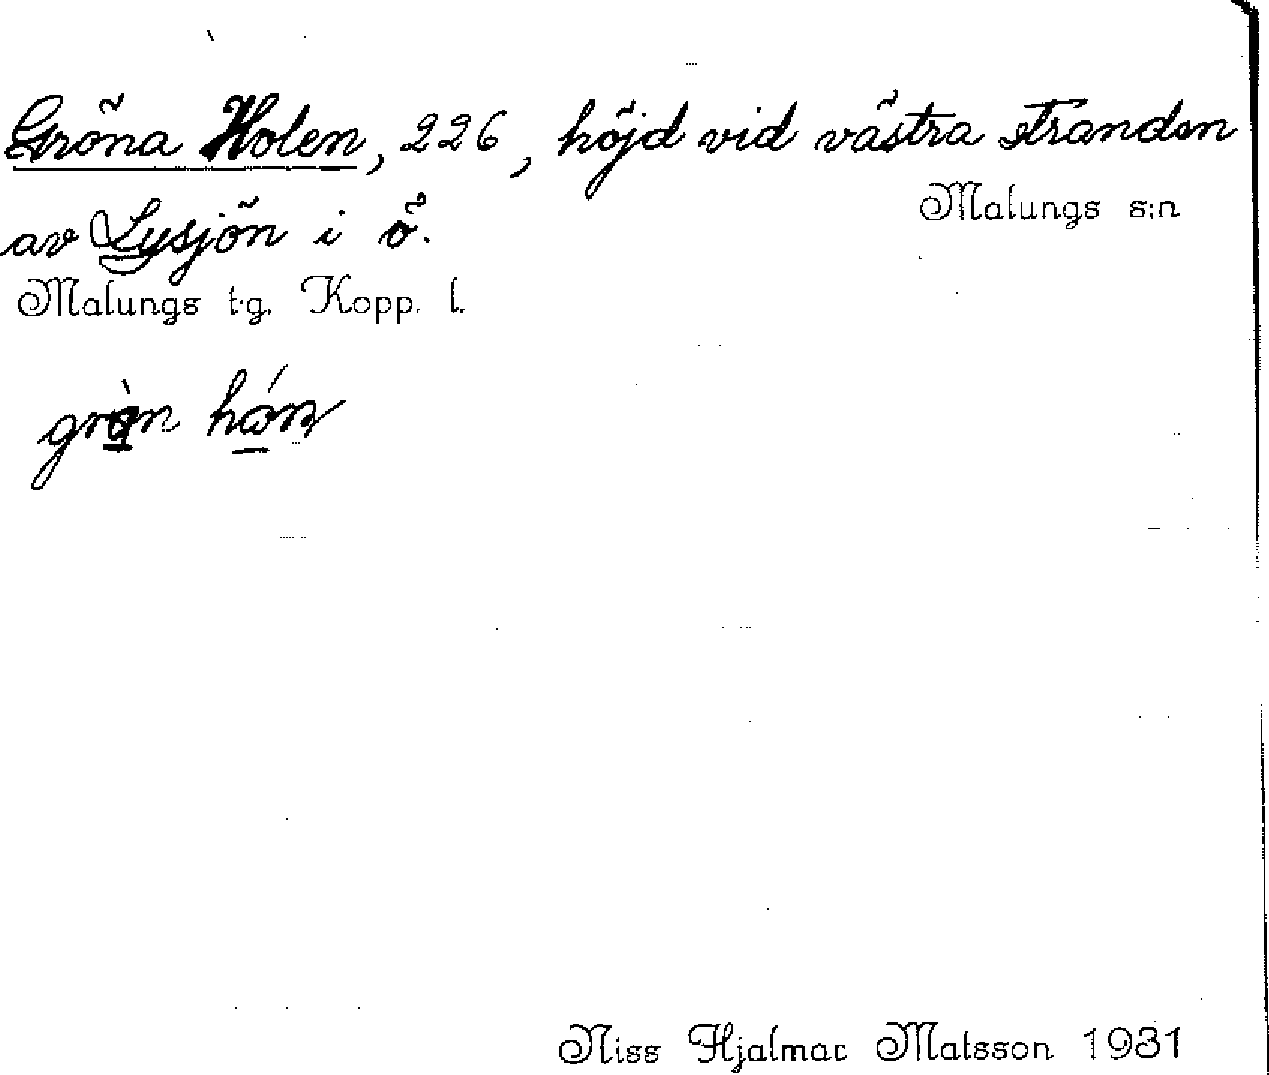 Gröna Holen, 226, höjd vid västra stranden
Malungs s:n
av Lysjön i ö.
Malungs t.g. Kopp. l.
Niss Hjalmar Matsson 1931